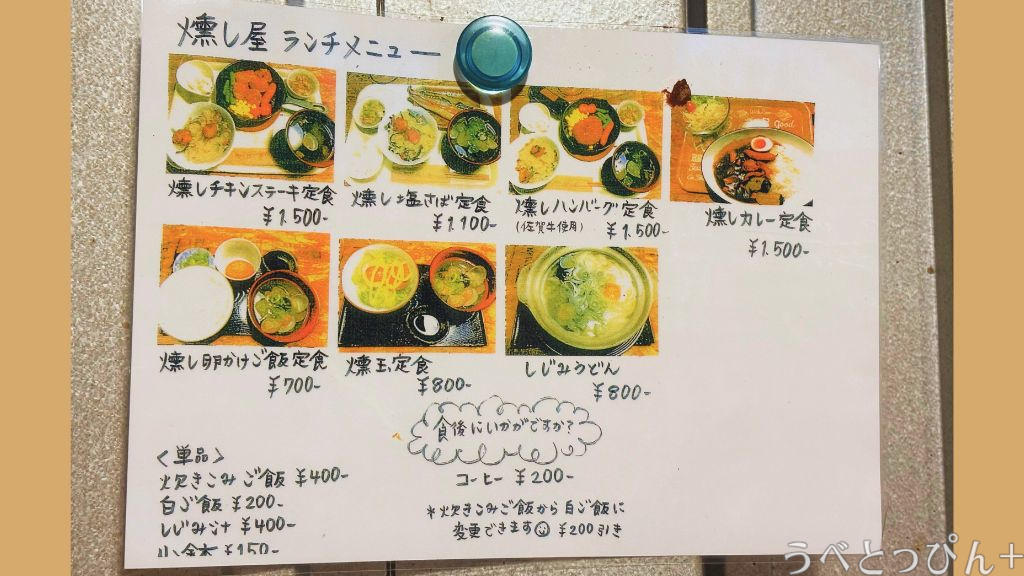 燻し屋 ランチメニュー
燻しチキンステーキ定食
¥1.500-
燻し塩さば定食
¥1.100-
燻しハンバーグ定食
(佐賀牛使用) ¥1.500-
Good
燻しカレー定食
¥1.500-
燻し卵かけご飯定食
¥700-
燻玉定食
¥800-
しじみうどん
¥800-
食後にいかがですか?
コーヒー ¥200-
＊炊きこみご飯から白ご飯に
変更できます☺ ¥200引き
<単品>
炊きこみご飯 ¥400-
白ご飯 ¥200-
しじみ汁 ¥400-
¥150-
うべとっぴん+